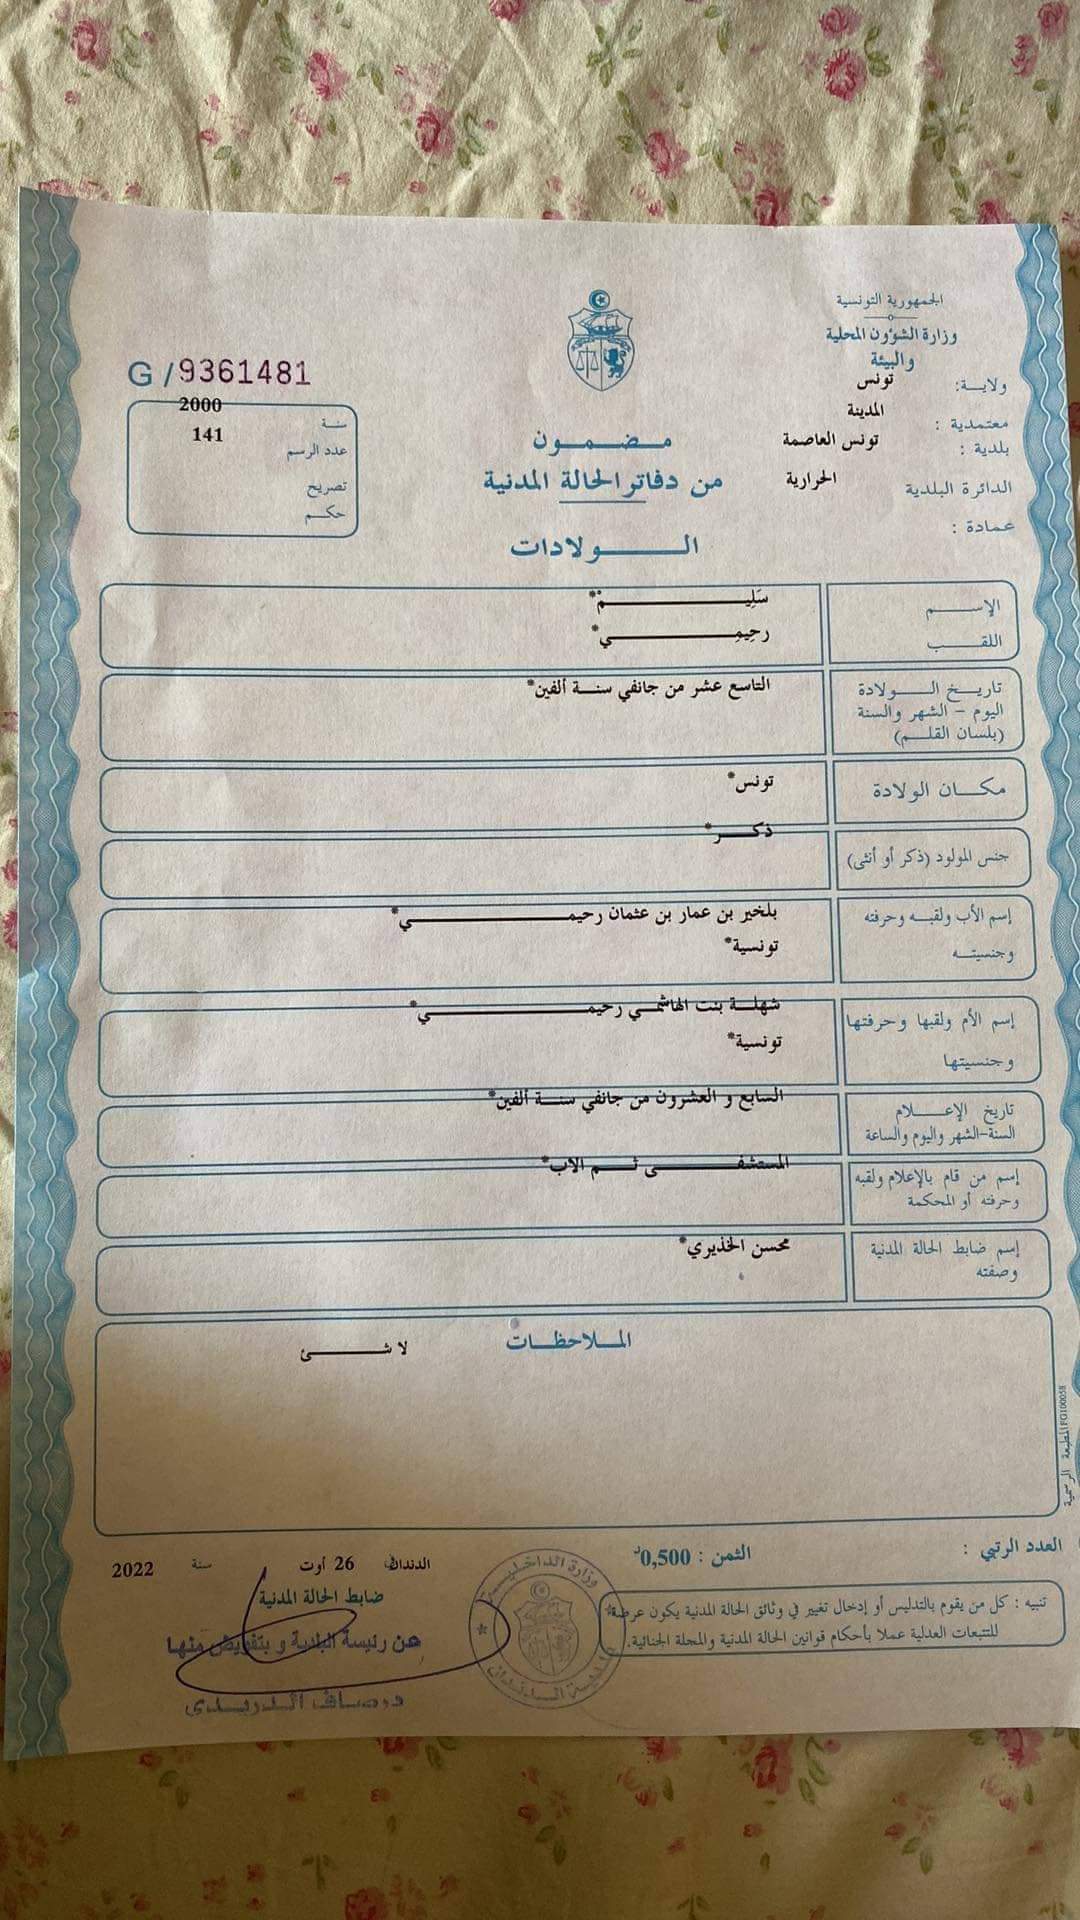 الجمهورية التونسية
وزارة الشؤون المحلية
والبيئة
ولاية: تونس
معتمدية : المدينة
بلدية : تونس العاصمة
الدائرة البلدية الحرارية
عمادة :
G /9361481
سنة 2000
عدد الرسم 141
تصريح
حكم
مضمون
من دفاتر الحالة المدنية
الولادات
الإسم سَلِيمْ*
اللقب رحِيمِي*
تاريخ الولادة التاسع عشر من جانفي سنة ألفين*
اليوم - الشهر والسنة
(بلسان القلم)
مكان الولادة تونس*
جنس المولود (ذكر أو أنثى) ذكر*
إسم الأب ولقبه وحرفته بلخير بن عمار بن عثمان رحيمي*
وجنسيته تونسية*
إسم الأم ولقبها وحرفتها شهلة بنت الهاشمي رحيمي*
وجنسيتها تونسية*
تاريخ الإعلام السابع و العشرون من جانفي سنة ألفين*
السنة-الشهر واليوم والساعة
إسم من قام بالإعلام ولقبه المستشفى ثم الاب*
وحرفته أو المحكمة
إسم ضابط الحالة المدنية محسن الخذيري*
وصفته
الملاحظات
لا شئ
المطبعة الرسمية FG100058
العدد الرتبي :
الثمن : 0,500د
الدندان في 26 أوت سنة 2022
ضابط الحالة المدنية
عن رئيسة البلدية و بتفويض منها
الدريدي
وزارة الداخلية
بلدية الدندان
تنبيه : كل من يقوم بالتدليس أو إدخال تغيير في وثائق الحالة المدنية يكون عرضة
للتتبعات العدلية عملا بأحكام قوانين الحالة المدنية والمجلة الجنائية.